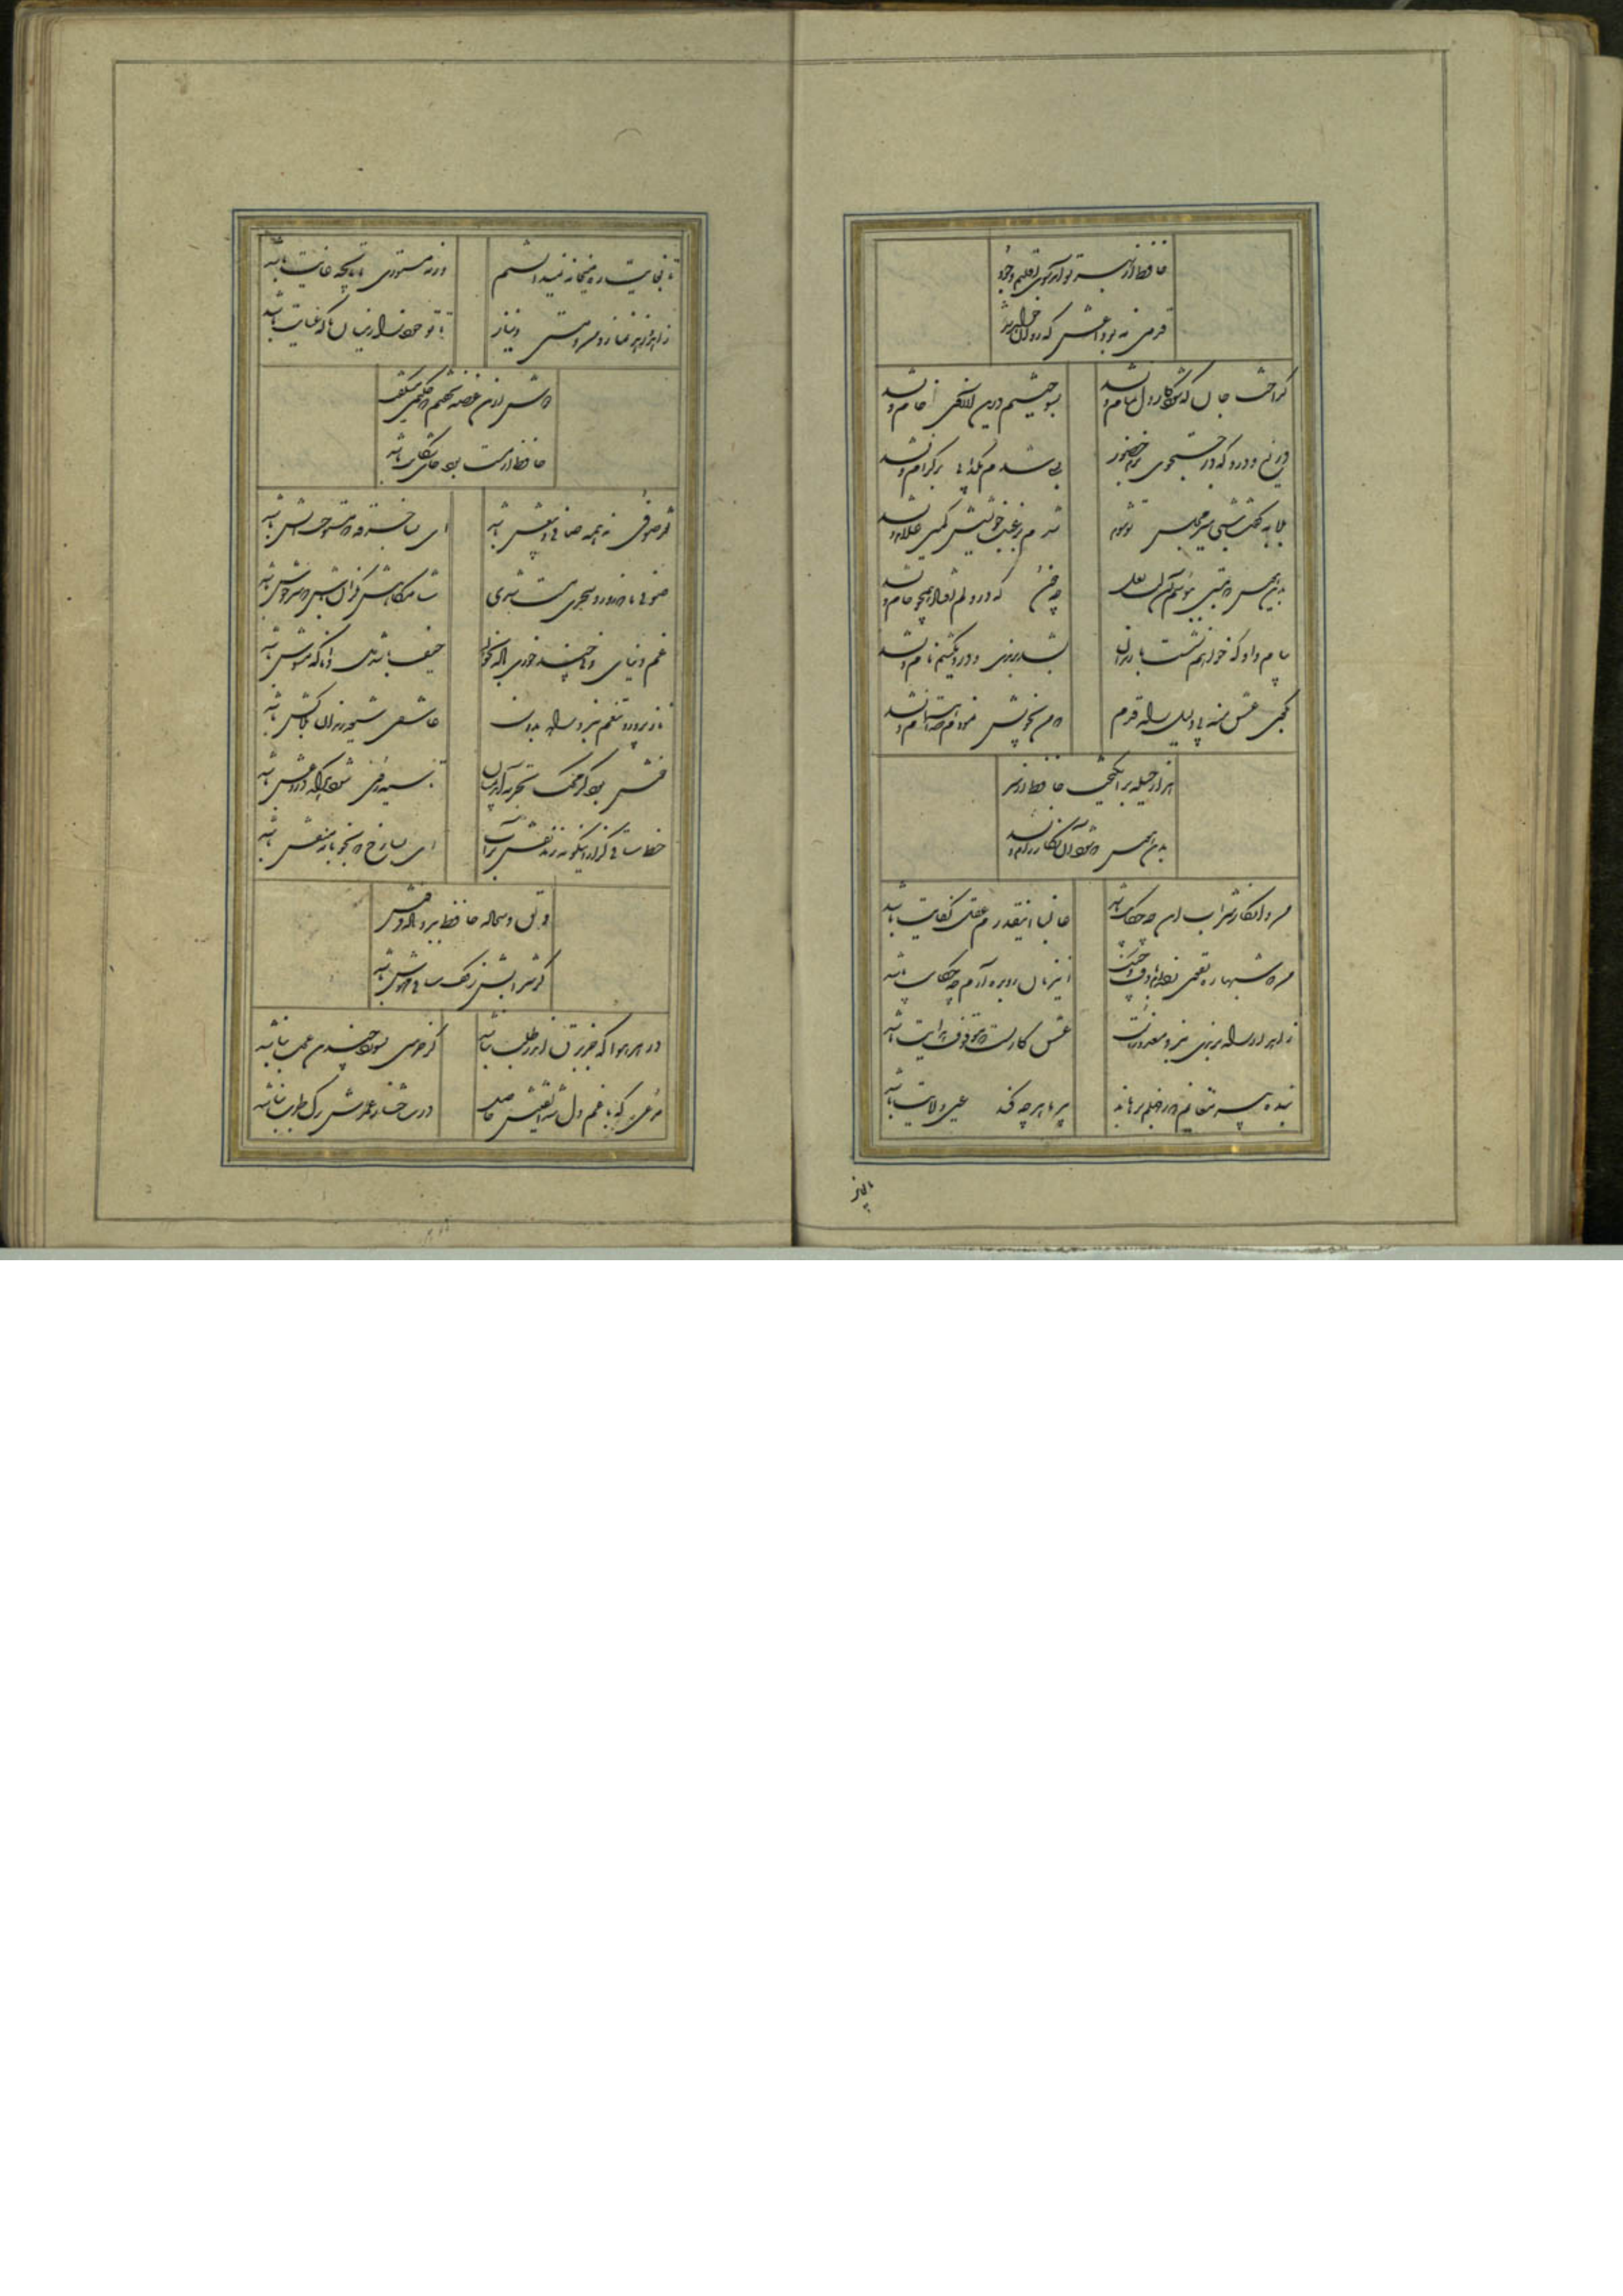 حافظ از بهر تو آمد سوی اقلیم وجود
قدمی نه بوداعش که روان خواهد شد
گداخت جان که شود کار دل تمام و نشد
بسوختیم درین آرزوی خام و نشد
دریغ و درد که در جستجوی گنج حضور
بسی شدم بگدایی بر کرام و نشد
بلابه گفت شبی میر مجلس تو شوم
شدم برغبت خویشش کمین غلام و نشد
بدین هوس که بمستی ببوسم آن لب لعل
چه خون که در دلم افتاد همچو جام و نشد
پیام داد که خواهم نشست با رندان
بشد برندی و دردی کشیم نام و نشد
بکوی عشق منه بی دلیل راه قدم
که من بخویش نمودم صد اهتمام و نشد
هزار حیله برانگیخت حافظ از سر
بدین هوس که شود آن نگار رام و نشد
من و انکار شراب این چه حکایت باشد
غالبا اینقدرم عقل کفایت باشد
من که شبها ره تقوی زده‌ام با دف و چنگ
این زمان سر بره آرم چه حکایت باشد
زاهد ار راه برندی نبرد معذورست
عشق کاریست که موقوف هدایت باشد
بنده پیر مغانم که ز جهلم برهاند
پیر ما هر چه کند عین ولایت باشد
تا بغایت ره میخانه نمیدانستم
ورنه مستوری ما تا بچه غایت باشد
زاهد و عجب و نماز و من و مستی و نیاز
تا ترا خود ز میان با که عنایت باشد
دوش ازین غصه نخفتم که حکیمی میگفت
حافظ ار مست بود جای شکایت باشد
نقد صوفی نه همه صافی بیغش باشد
ای بسا خرقه که مستوجب آتش باشد
صوفی ما که ز ورد سحری مست شدی
شامگاهش نگران باش که سرخوش باشد
غم دنیای دنی چند خوری باده بخور
حیف باشد دل دانا که مشوش باشد
نازپرورد تنعم نبرد راه بدوست
عاشقی شیوه رندان بلاکش باشد
خوش بود گر محک تجربه آید بمیان
تا سیه روی شود هر که دروغش باشد
خط ساقی گر ازین گونه زند نقش بر آب
ای بسا رخ که بخونابه منقش باشد
دلق و سجاده حافظ ببرد باده فروش
گر شرابش ز کف ساقی مهوش باشد
در هر هوا که جز برق اندر طلب نباشد
گر خرمنی بسوزد چندان عجب نباشد
مرغی که با غم دل شد الفتیش حاصل
در شاخسار عمرش برگ طرب نباشد